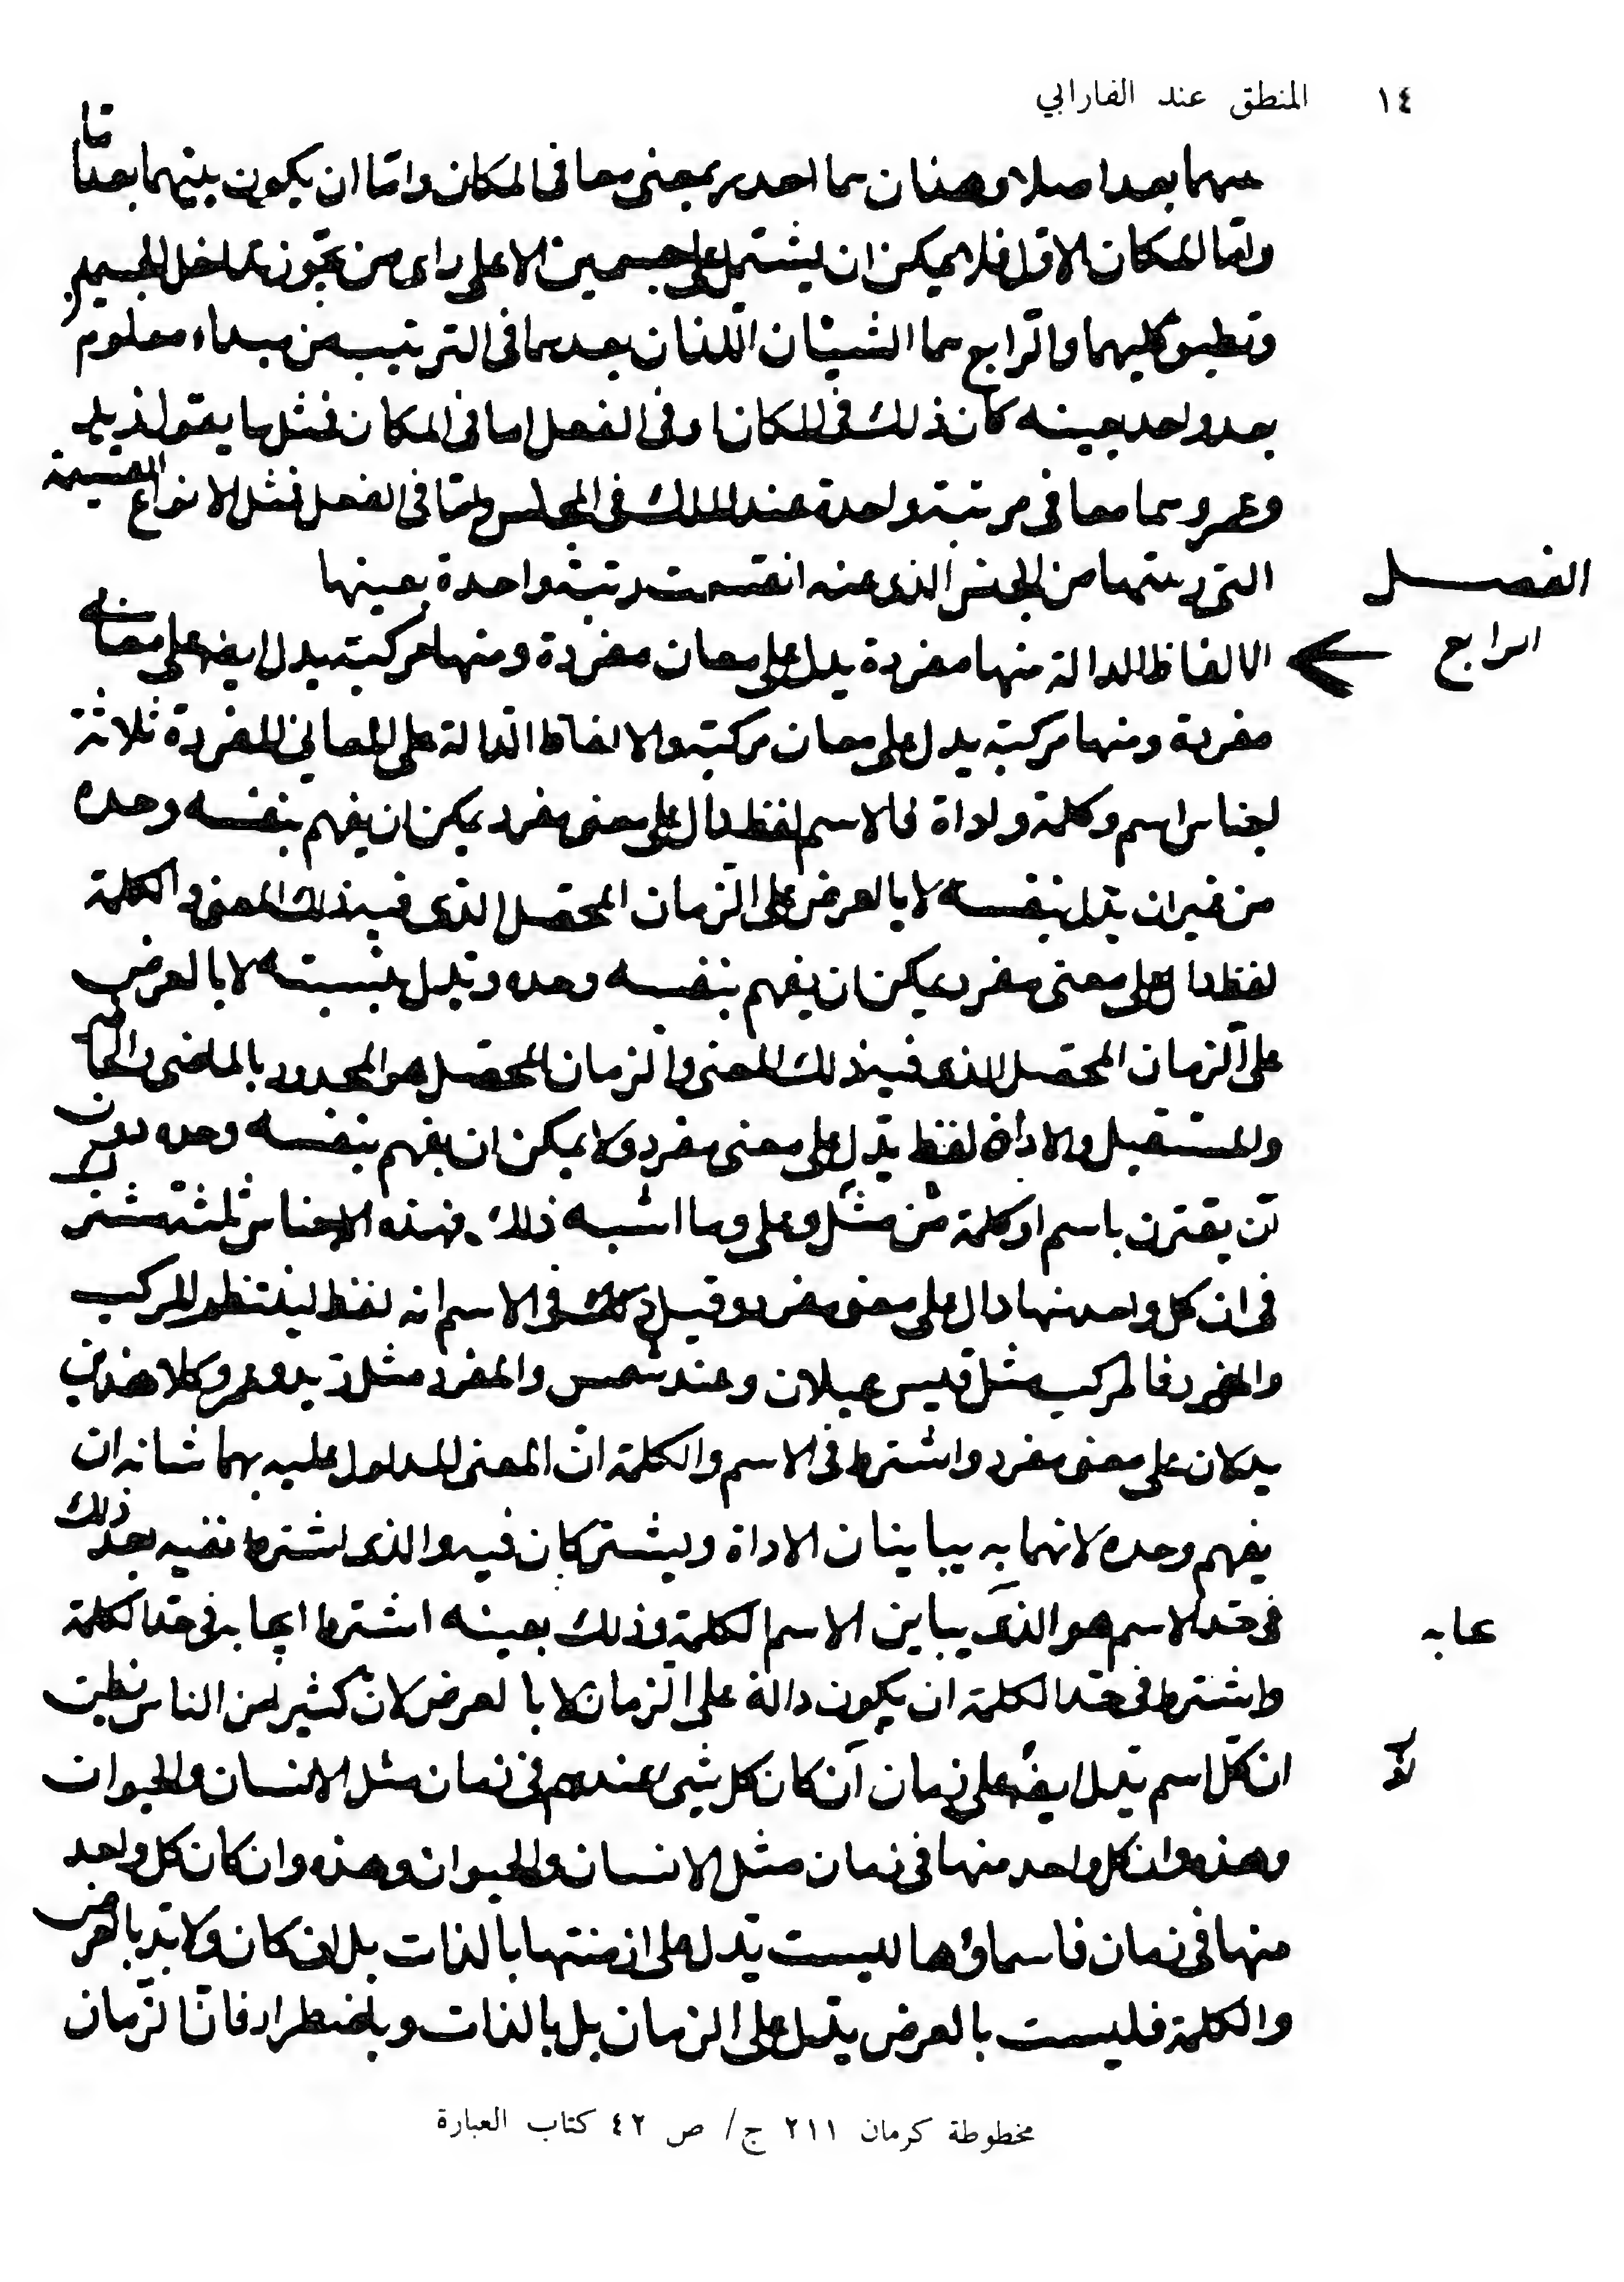 ١٤ المنطق عند الفارابي
بينهما بعد اصلا وهذان هما احد بمعنى معا فى المكان واما ان يكون بينهما بعد ما
واما المكان الاول فلا يمكن ان يشتمل على جسمين الا على راى من تجوز تداخل الجسمين
وتطبق كليهما والرابع هما الشيئان اللذان بعدهما فى الترتيب من مبداء معلوم
بعد واحد بعينه كان ذلك فى المكان او فى الفصل اما فى المكان فمثل ما يقول زيد
وعمرو هما معا فى مرتبة واحدة عند الملك فى المجلس واما فى الفصل فمثل الانواع القسيمة
التى رتبتها من الجنس الذى عنه انقسمت رتبة واحدة بعينها
الفصل الرابع
الالفاظ الدالة منها مفردة يدل على معان مفردة ومنها مركبة يدل ايضا على معان
مفردة ومنها مركبة يدل على معان مركبة والالفاظ الدالة على المعانى المفردة ثلاثة
اجناس اسم وكلمة واداة فالاسم لفظ دال على معنى مفرد يمكن ان يفهم بنفسه وحده
من غير ان يدل بنفسه لا بالعرض على الزمان المحصل الذى فيه ذلك المعنى والكلمة
لفظ دال على معنى مفرد يمكن ان يفهم بنفسه وحده ويدل ببنيته لا بالعرض
على الزمان المحصل الذى فيه ذلك المعنى والزمان المحصل هو المحدود بالماضى والحال
والمستقبل والاداة لفظ يدل على معنى مفرد ولا يمكن ان يفهم بنفسه وحده دون
ان يقترن باسم او كلمة مثل من وعلى وما اشبه ذلك. فهذه الاجناس الثلثة تشترك
فى ان كل واحد منها دال على معنى مفرد وقيل ذلك فى الاسم انه لفظ لينتظم المركب
والمفرد فالمركب مثل قيس عيلان وعبد شمس والمفرد مثل زيد وعمرو وكلا هذين
يدلان على معنى مفرد واشترط فى الاسم والكلمة ان المعنى المدلول عليه بهما شانه ان
يفهم وحده لانهما به يباينان الاداة ويشتركان فيه والذى اشترط نفيه بعد ذلك
فى حد الاسم هو الذى يباين الاسم الكلمة وذلك بعينه اشترط ايجابه فى حد الكلمة
عابه
واشترط فى حد الكلمة ان يكون دالة على الزمان لا بالعرض لان كثيرا من الناس يظن
ان كل اسم يدل ايضا على زمان ان كان كل شىء عندهم فى زمان مثل الانسان والحيوان
وهذه وان كل واحد منها فى زمان مثل الانسان والحيوان وهذه وان كان كل واحد
منها فى زمان فاسماؤها ليست يدل على ازمنتها بالذات بل ان كان ولا بد بالعرض
والكلمة فليست بالعرض يدل على الزمان بل بالذات وباضطرار فان الزمان
مخطوطة كرمان ٢١١ ج/ ص ٤٢ كتاب العبارة